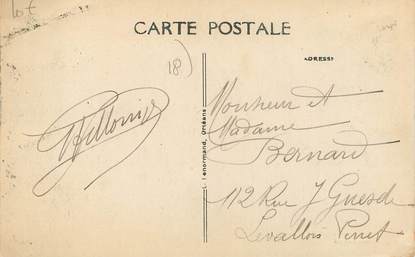 lot
CARTE POSTALE
18)
ADRESSE
L. Lenormand, Orléans
Monsieur et
Madame
Bernard
112 Rue J Guesde
Levallois Perret